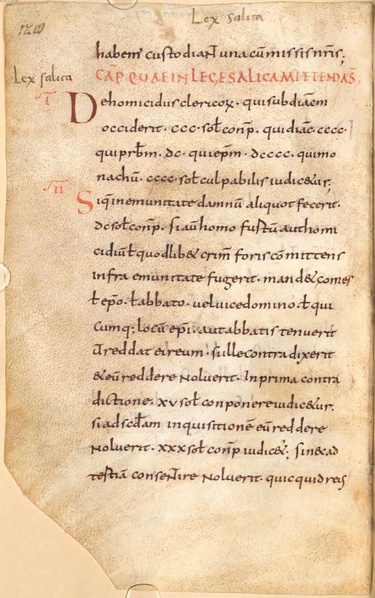 Lex salica
habent custodiant una cũ missis nr̃is;
Lex salica
CAP QUAE IN LEGE SALICA MITTENDA S̃,
I
De homicidiis clericorꝝ · qui subdiacm̃
occiderit · ccc · sol conp̃ · qui diac̃ cccc ·
qui prb̃m · dc · qui ep̃m · dcccc · qui mo
nachũ · cccc · sol culpabilis iudicet̃ur;
II
Siq̃ in emunitate damnũ aliquot fecerit ·
dc sol conp̃ · si aũ homo furtũ aut homi
cidiũ ł quodlib& crim̃ foris committens
infra emunitate fugerit · mand& comes
ł ep̃o · ł abbato · vel vicedomino · ł qui
cumq; locũ ep̃i · aut abbatis tenuerit
ut reddat ei reum · si ille contradixerit
& eũ reddere noluerit · In prima contra
dictione; xv sol conponere iudic&ur ·
si ad sc̃dam inquisitione eũ reddere
noluerit · xxx sol conp̃ iudic&; sinec ad
tertiã consentire noluerit · quicquid reus